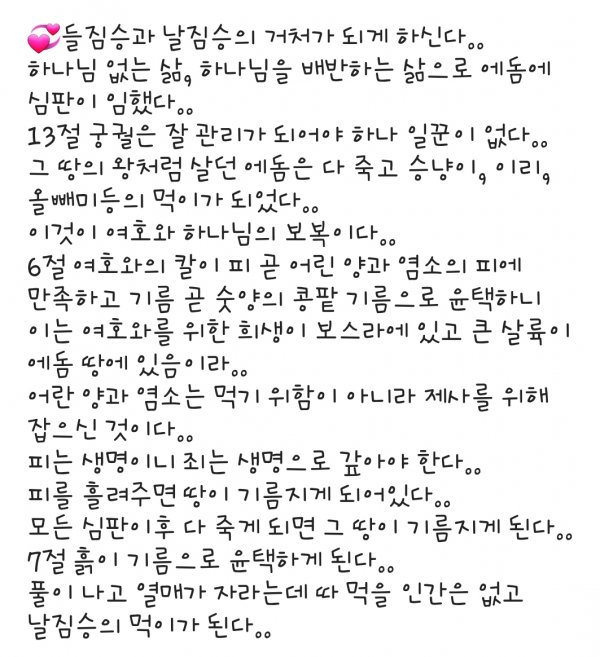 💞들짐승과 날짐승의 거처가 되게 하신다..
하나님 없는 삶, 하나님을 배반하는 삶으로 에돔에
심판이 임했다..
13절 궁궐은 잘 관리가 되어야 하나 일꾼이 없다..
그 땅의 왕처럼 살던 에돔은 다 죽고 승냥이, 이리,
올빼미등의 먹이가 되었다..
이것이 여호와 하나님의 보복이다..
6절 여호와의 칼이 피 곧 어린 양과 염소의 피에
만족하고 기름 곧 숫양의 콩팥 기름으로 윤택하니
이는 여호와를 위한 희생이 보스라에 있고 큰 살륙이
에돔 땅에 있음이라..
어란 양과 염소는 먹기 위함이 아니라 제사를 위해
잡으신 것이다..
피는 생명이니 죄는 생명으로 갚아야 한다..
피를 흘려주면 땅이 기름지게 되어있다..
모든 심판이후 다 죽게 되면 그 땅이 기름지게 된다..
7절 흙이 기름으로 윤택하게 된다..
풀이 나고 열매가 자라는데 따 먹을 인간은 없고
날짐승의 먹이가 된다..